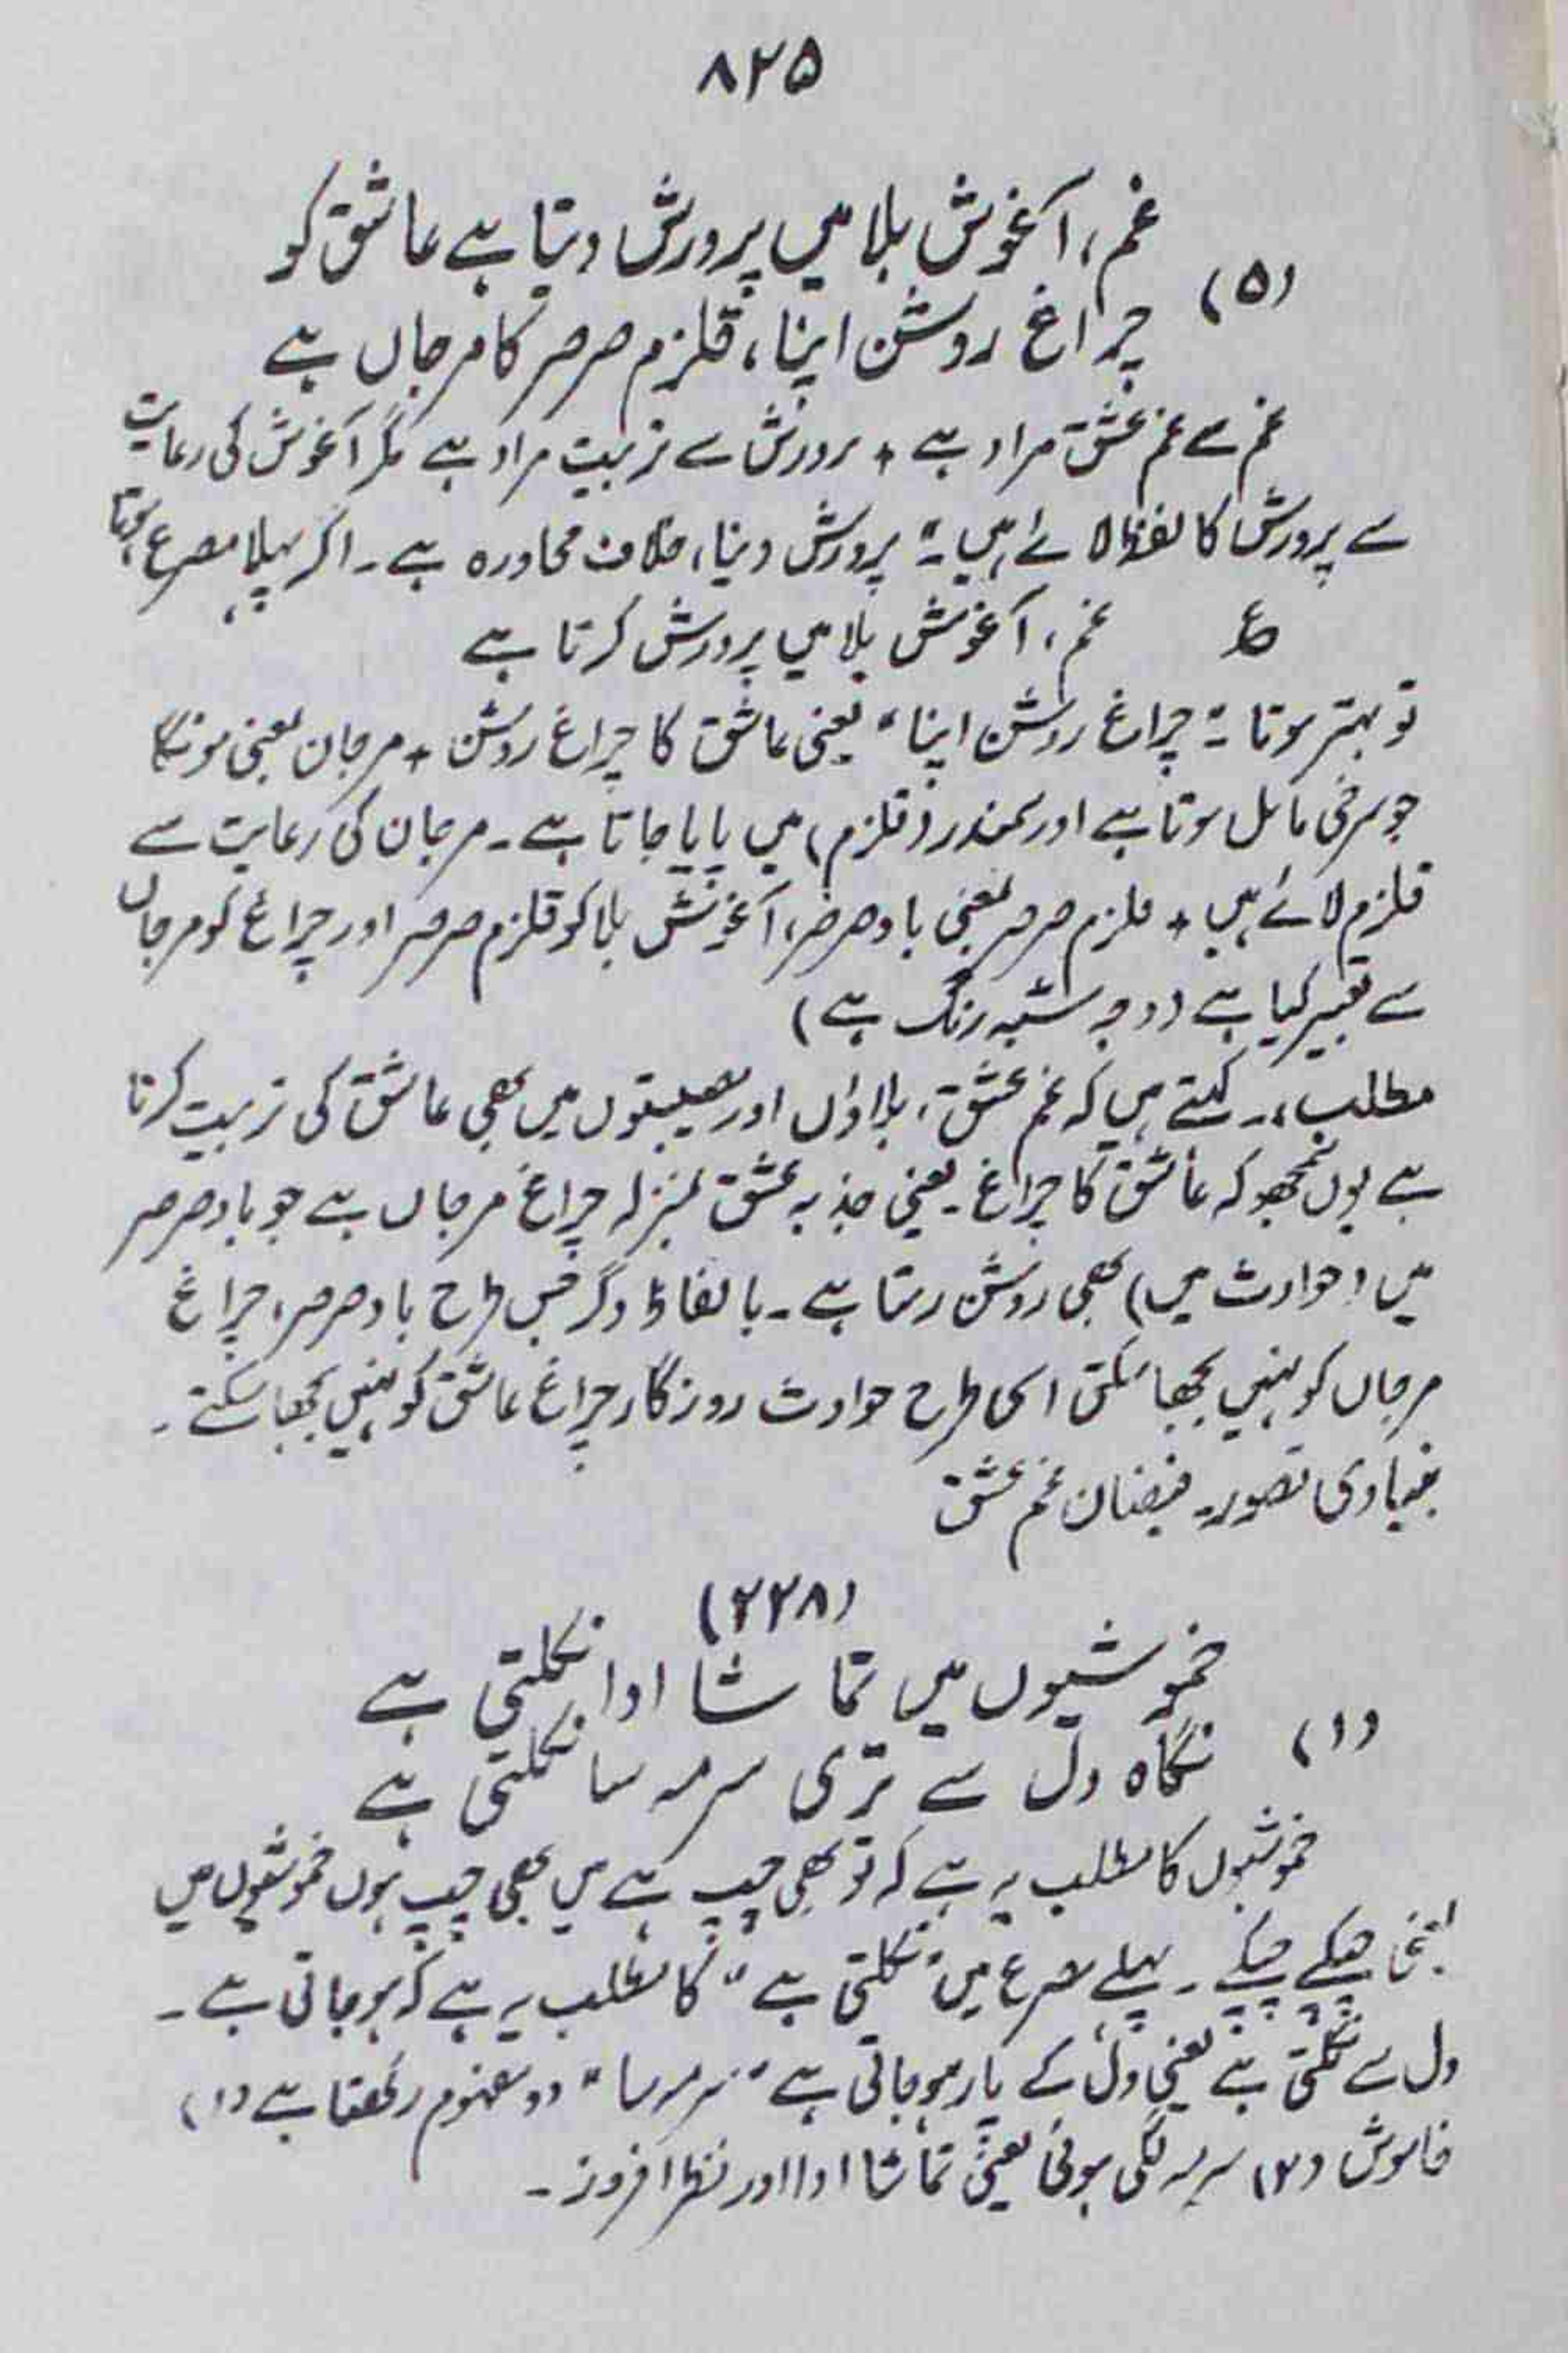 ۸۲۵
غم، آغوش بلا میں پرورش دیتا ہے عاشق کو
(۵)
چراغ روشن اپنا، قلزم صرصر کا مرجاں ہے
غم سے غم عشق مراد ہے + پرورش سے تربیت مراد ہے مگر آغوش کی رعایت
سے پرورش کا لفظ لائے ہیں۔ "پرورش دینا، خلاف محاورہ ہے۔ اگر پہلا مصرع ہوتا
ع غم، آغوش بلا میں پرورش کرتا ہے
تو بہتر ہوتا۔ "چراغ روشن اپنا" یعنی عاشق کا چراغ روشن + مرجان بمعنی مونگا
جو سرخی مائل ہوتا ہے اور سمندر (قلزم) میں پایا جاتا ہے۔ مرجان کی رعایت سے
قلزم لائے ہیں + قلزم صرصر بمعنی باد صرصر، آغوش بلا کو قلزم صرصر اور چراغ کو مرجاں
سے تعبیر کیا ہے (وجہ شبہ رنگ ہے)
مطلب:۔ کہتے ہیں کہ غم عشق، بلاؤں اور مصیبتوں میں بھی عاشق کی تربیت کرتا
ہے یوں سمجھو کہ عاشق کا چراغ۔ یعنی جذبہ عشق بمنزلہ چراغ مرجاں ہے جو باد صرصر
میں (حوادث میں) بھی روشن رہتا ہے۔ بالفاظ دگر جس طرح باد صرصر، چراغ
مرجاں کو نہیں بجھا سکتی اسی طرح حوادث روزگار چراغ عاشق کو نہیں بجھا سکتے۔
بنیادی تصور۔ فیضان غم عشق
(۲۲۸)
خموشیوں میں تماشا ادا نکلتی ہے
(۱)
نگاہ دل سے تری سرمہ سا نکلتی ہے
خموشیوں کا مطلب یہ ہے کہ تو بھی چپ ہے میں بھی چپ ہوں خموشیوں میں
یعنی چپکے چپکے۔ پہلے مصرع میں "نکلتی ہے" کا مطلب یہ ہے کہ ہو جاتی ہے۔
دل سے نکلتی ہے یعنی دل کے پار ہو جاتی ہے "سرمہ سا" دو مفہوم رکھتا ہے (۱)
خاموش (۲) سرمہ لگی ہوئی یعنی تماشا ادا اور نظر افروز۔